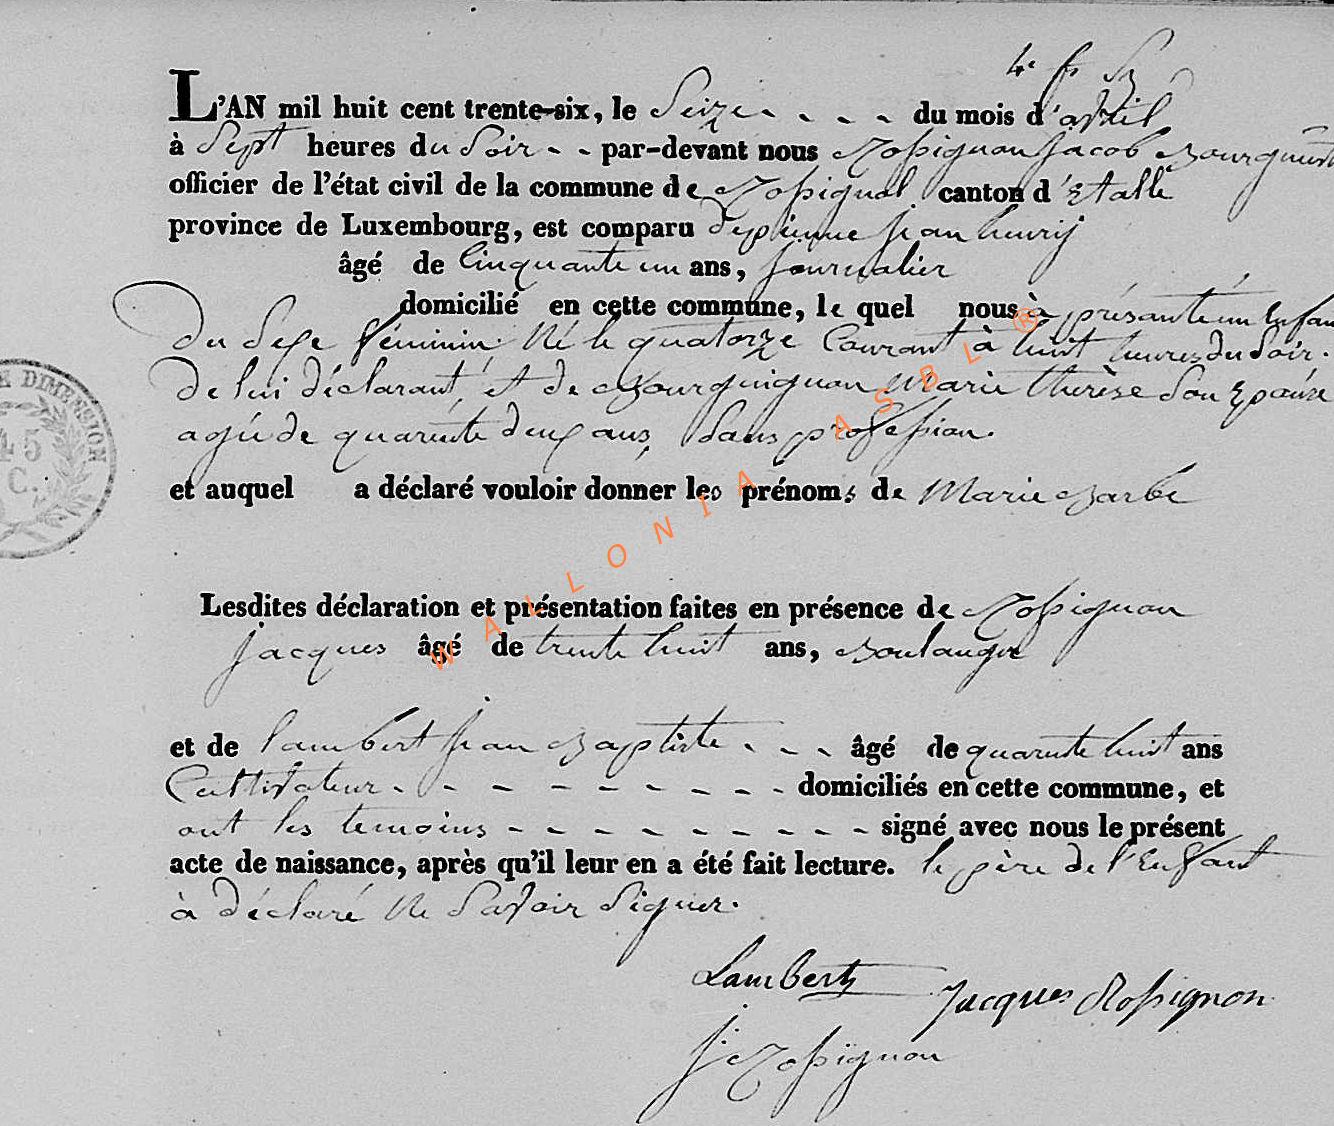 4e
L'AN mil huit cent trente-six, le Seize - - - du mois d'avril
à Sept heures du Soir - - par-devant nous Rossignon Jacob Bourgmest
officier de l'état civil de la commune de Rossignol canton d'Etalle
province de Luxembourg, est comparu Jean henrij
âgé de Cinquante un ans, journalier
domicilié en cette commune, le quel nous à présanté un Enfan
Du Sexe féminin. Né le quatorze Courant à huit heures du Soir.
De lui déclarant, et de Bourguignon Marie thérèse Son Epouse
agée de quarente deux ans, Sans profession.
et auquel a déclaré vouloir donner les prénoms de Marie Barbe
Lesdites déclaration et présentation faites en présence de Rossignon
Jacques âgé de trente huit ans, Boulanger
et de lambert Jean Baptiste - - - âgé de quarente huit ans
Cultivateur - - - - - - - - - - domiciliés en cette commune, et
ont les temoins - - - - - - - - - signé avec nous le présent
acte de naissance, après qu'il leur en a été fait lecture. le père de l'Enfant
à déclaré Ne Savoir Signer.
Lambert
Jacques Rossignon
J Rossignon
E DIMENSION
45
C.
WALLONIA ASBL ®